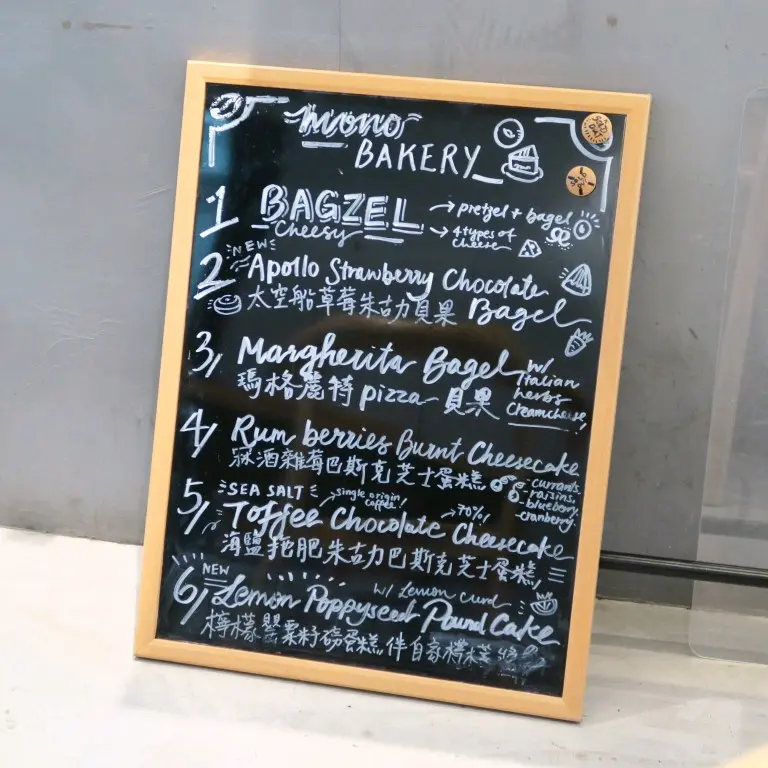 mono
BAKERY
1 BAGZEL → pretzel + bagel
Cheesy → 4 types of cheese
NEW
2 Apollo Strawberry Chocolate
太空船草莓朱古力貝果 Bagel
3 Margherita Bagel w/ Italian herbs creamcheese!
瑪格麗特 pizza 貝果
4 Rum berries Burnt Cheesecake
冧酒雜莓巴斯克芝士蛋糕 - currants.
- raisins.
- blueberry.
- cranberry.
5 SEA SALT → single origin coffee! → 70%!
Toffee Chocolate Cheesecake
海鹽拖肥朱古力巴斯克芝士蛋糕
6 NEW w/ Lemon curd
Lemon Poppyseed Pound Cake
檸檬罌粟籽磅蛋糕伴自家檸檬